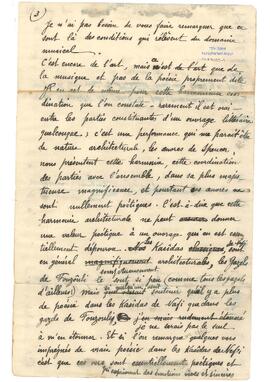 (2)
Je n'ai pas besoin de vous faire remarquer que ce
sont là des conditions qui relèvent du domaine
musical.
C'est encore de l'art, mais c'est de l'art que de
la musique et pas de la poésie proprement dite
Il en est de même pour cette harmonieuse coor-
dination, que l'on constate - rarement il est vrai -
entre les parties constituantes d'un ouvrage littéraire
quelconque; c'est une performance qui me paraît être
de nature architecturale, les œuvres de Spencer,
nous présentent cette harmonie cette coordination
des parties avec l'ensemble, dans sa plus majes-
tueuse magnificence, et pourtant ces œuvres ne
sont nullement poétiques. C'est-à-dire que cette
harmonie architecturale ne peut donner une
valeur poétique à un ouvrage qui en est essen-
tiellement dépourvu. Les Kasidas
en général magnifiquement architecturales, les gazels
de Fouzouli le sont aussi (comme tous les gazels
d'ailleurs) mais quel qu'il y a plus
de poésie dans les Kasidas de Nefi que dans les
gazels de Fouzouli,
je ne serai pas le seul
à m'en étonner. Et si l'on remarque quelques vers
imprégnés de vraie poésie dans les Kasidas de Nefi
c'est que ces vers sont essentiellement poétiques et
qui expriment des émotions vives et sincères